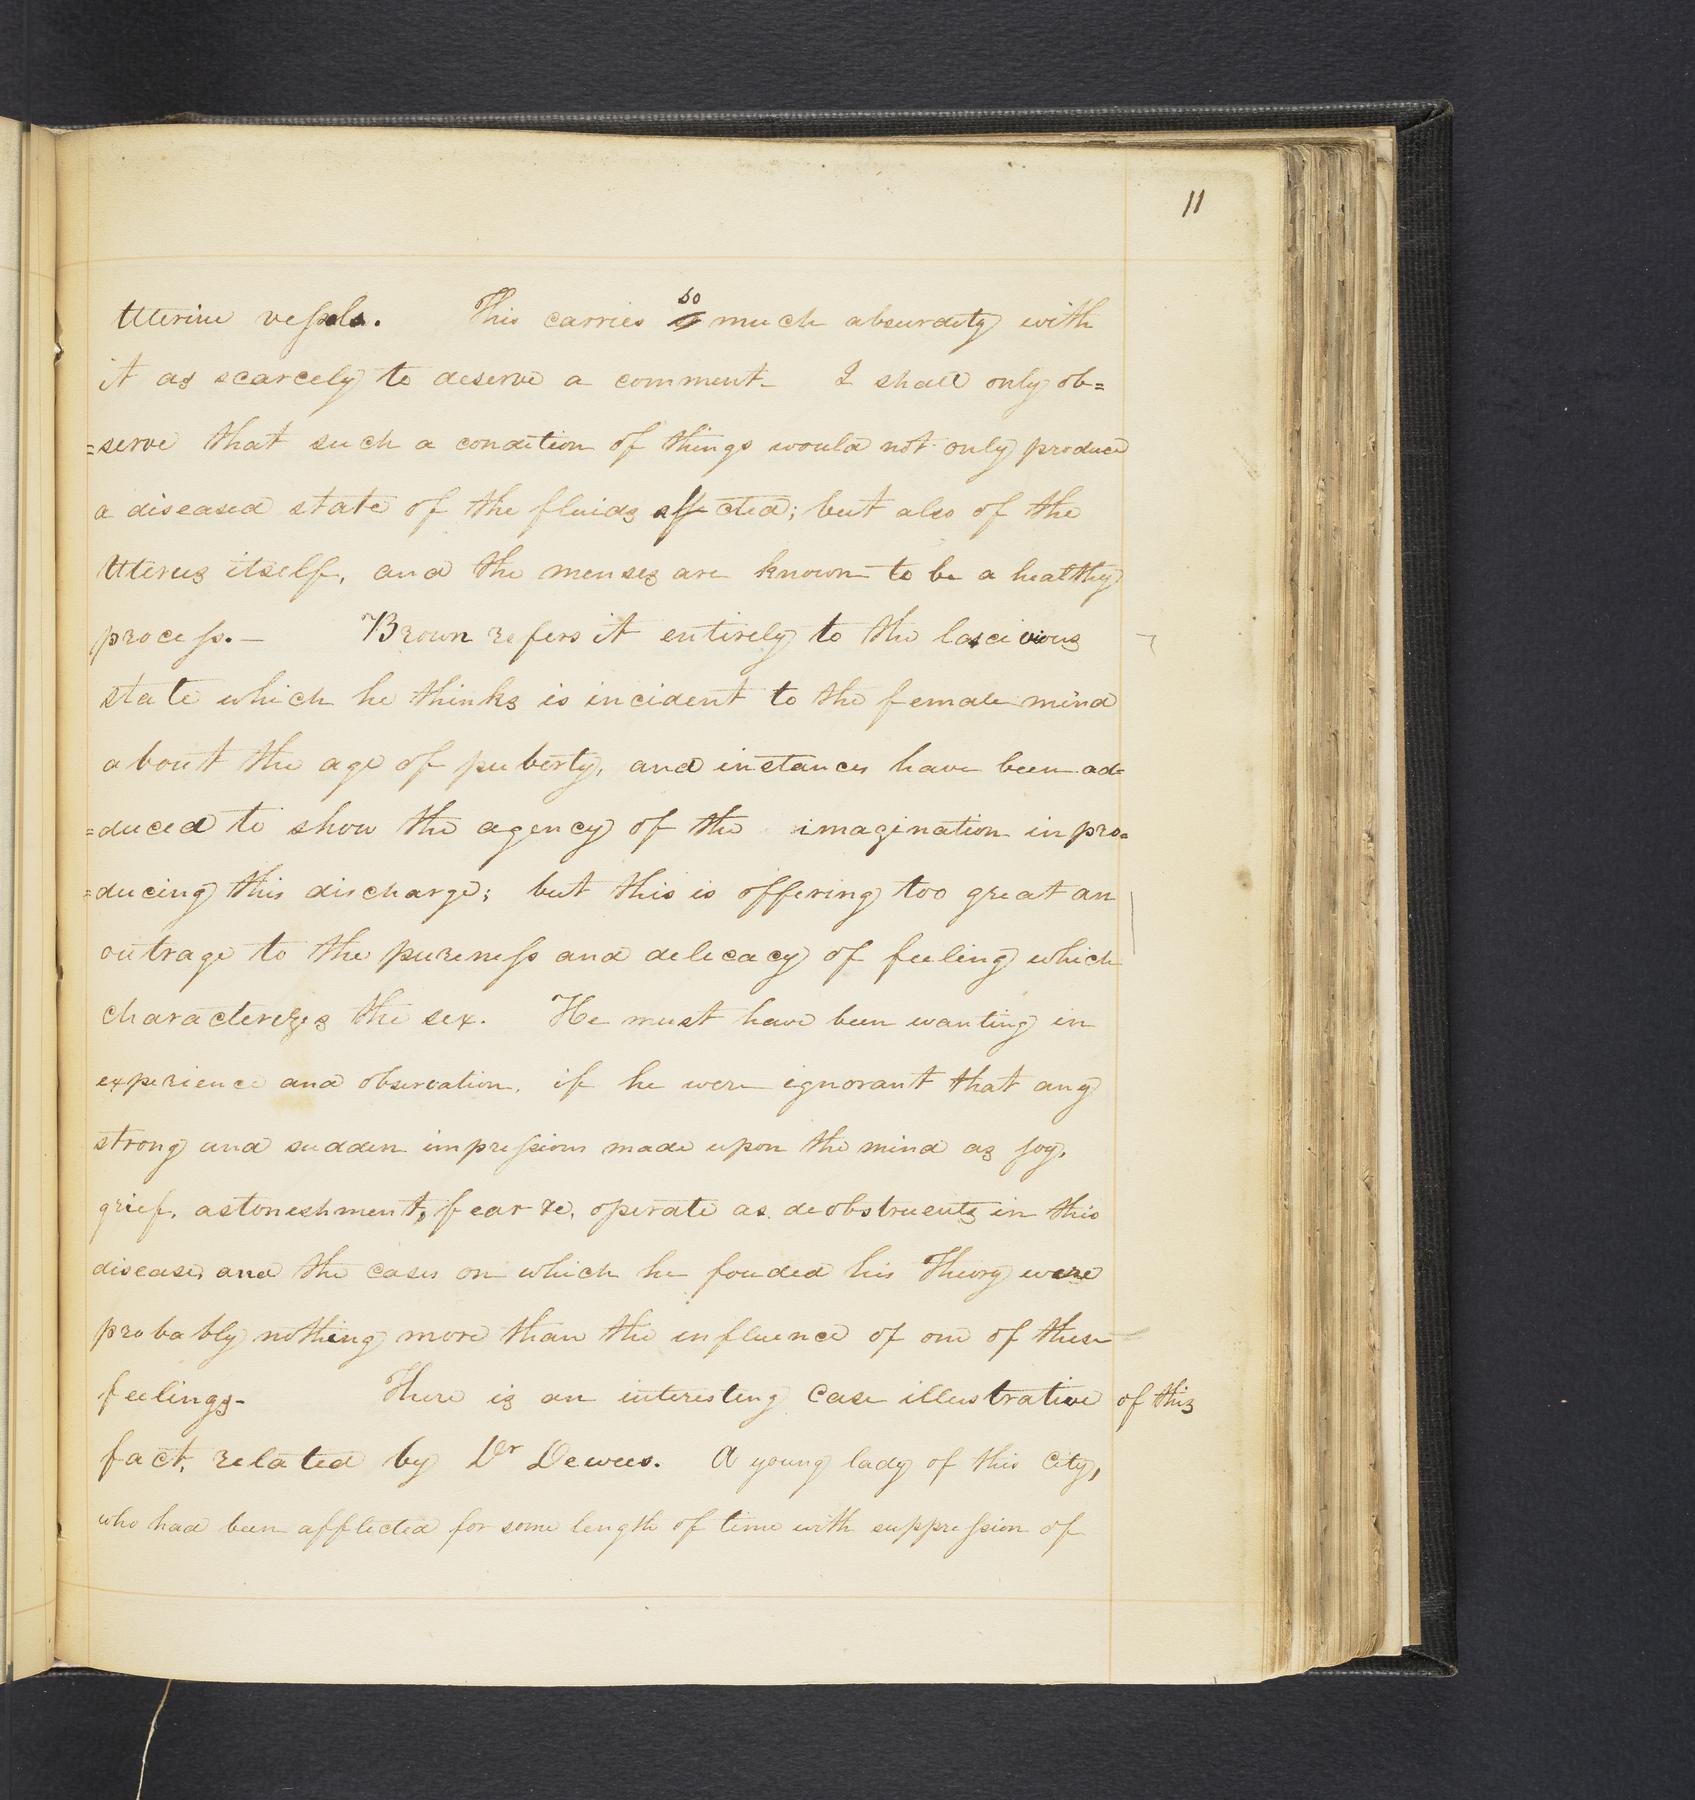 11
Uterine vessels. This carries so much absurdity with
it as scarcely to deserve a comment- I shall only ob=
=serve that such a condition of things would not only produce
a diseased state of the fluids affected; but also of the
Uterus itself, and the menses are known to be a healthy
process.- Brown refers it entirely to the lascivious
state which he thinks is incident to the female mind
about the age of puberty, and instances have been ad=
=duced to show the agency of the imagination in pro=
=ducing this discharge; but this is offering too great an
outrage to the pureness and delicacy of feeling which
characterizes the sex. He must have been wanting in
experience and observation, if he were ignorant that any
strong and sudden impressions made upon the mind as joy,
grief, astonishment, fear &c, operate as deobstruents in this
disease, and the cases on which he fouded his Theory were
probably nothing more than the influence of one of these
feelings- There is an interesting Case illustrative of this
fact, related by Dr Dewees. A young lady of this City,
who had been afflicted for some length of time with suppression of